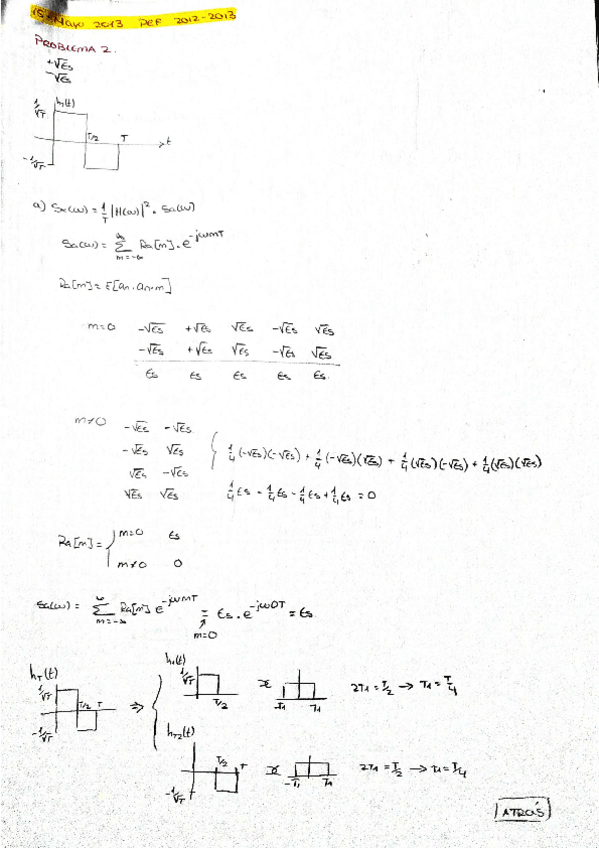 15 Mayo 2013 PEF 2012-2013
PROBLEMA 2.
+√Es
-√Es
1/√T h₁(t)
T/2 T t
-1/√T
a) Sx(ω) = 1/T |H(ω)|² · Sa(ω)
Sa(ω) = ∑_{m=-∞}^{∞} Ra[m] · e^{-jωmT}
Ra[m] = E[an · an-m]
m=0 -√Es +√Es √Es -√Es √Es
-√Es +√Es √Es -√Es √Es
Es Es Es Es Es
m≠0 -√Es -√Es
-√Es √Es { 1/4 (-√Es)(-√Es) + 1/4 (-√Es)(√Es) + 1/4 (√Es)(-√Es) + 1/4 (√Es)(√Es)
√Es -√Es
√Es √Es 1/4 Es - 1/4 Es - 1/4 Es + 1/4 Es = 0
Ra[m] = { m=0 Es
m≠0 0
Sa(ω) = ∑_{m=-∞}^{∞} Ra[m] e^{-jωmT} = Es · e^{-jω0T} = Es
m=0
hT(t) 1/√T T/2 T -1/√T ⇒ { h₁(t) 1/√T T/2 x -T1 T1 2T1 = T/2 → T1 = T/4
hT2(t) T/2 T -1/√T x -T1 T1 2T1 = T/2 → T1 = T/4
ATRÁS